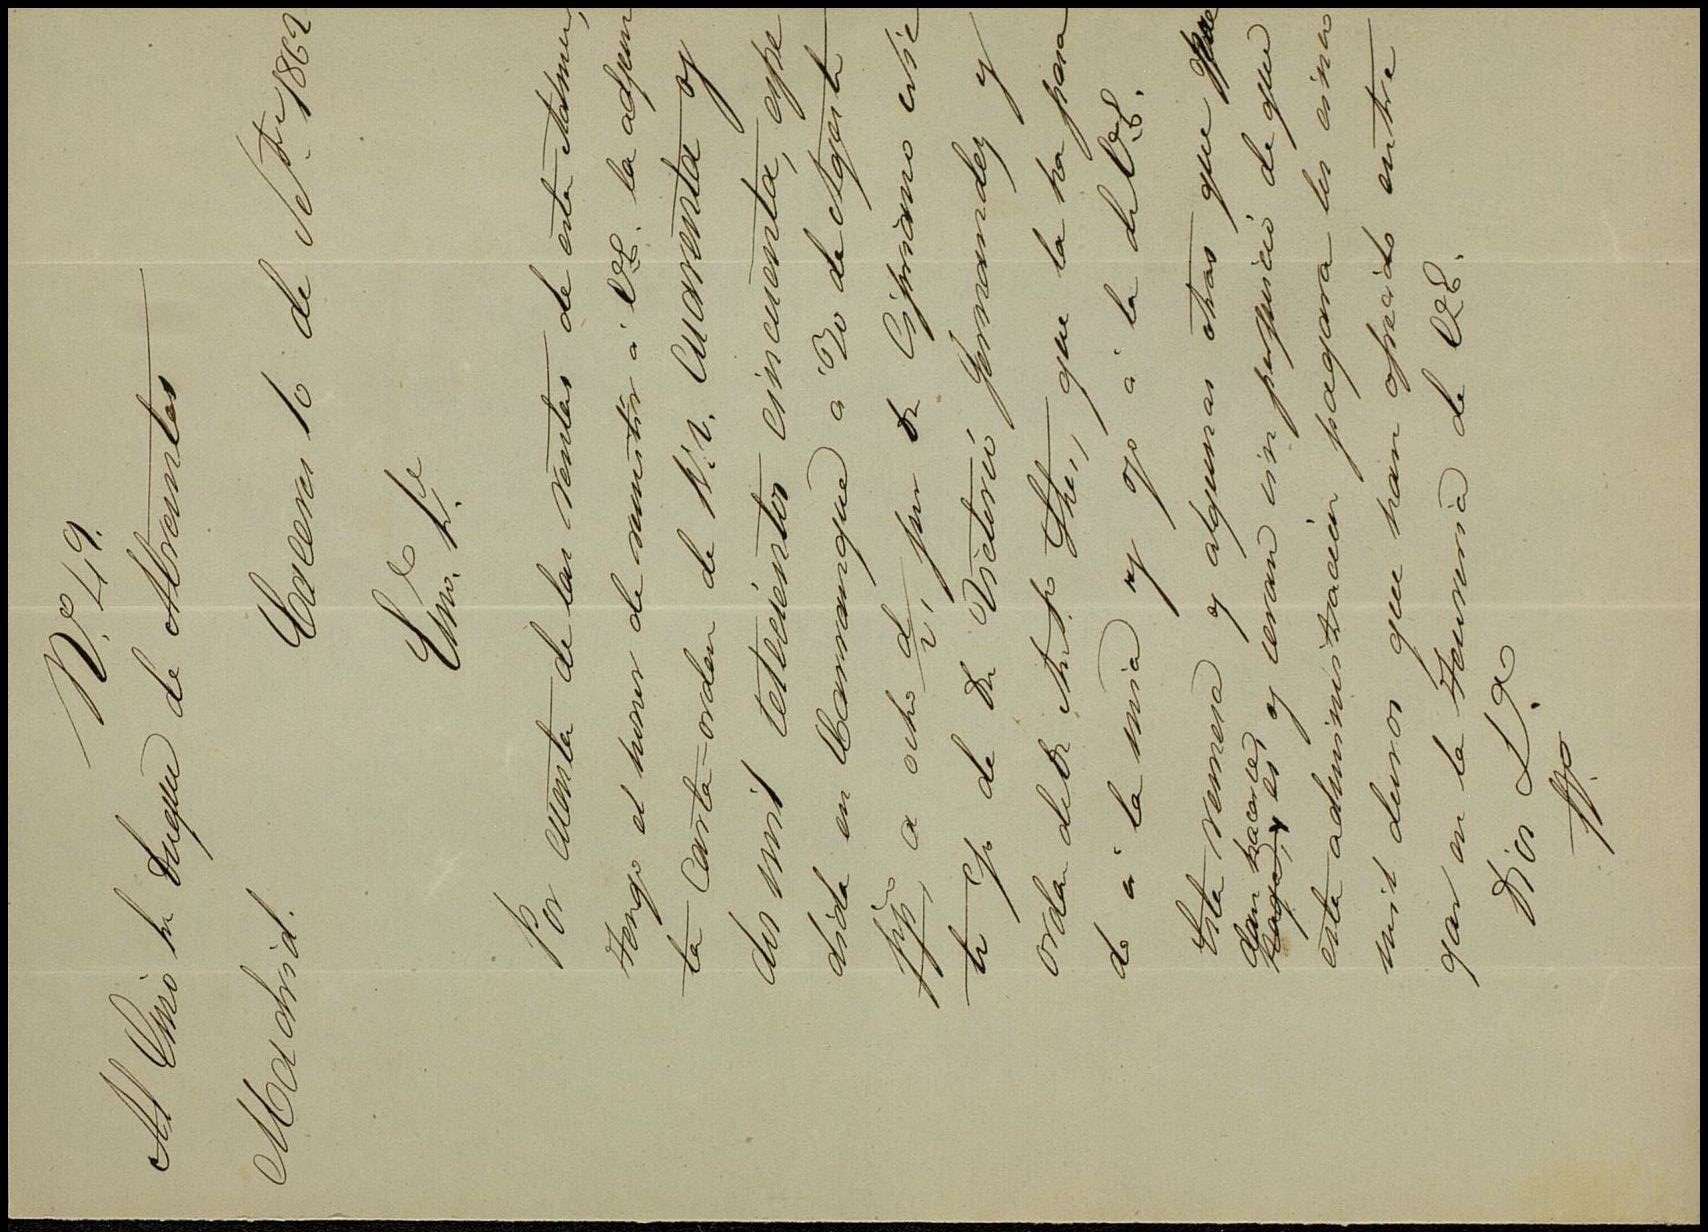 Nº 49.
Al Emo Sr Duque de Abrantes
Madrid.
Cáceres 10 de Stre 1862
Emo. Sr.
Por cuenta de las rentas de esta
tengo el honor de remitir á V.E. la adjun
ta carta-orden de R.v. cuarenta y
dos mil setecientos cincuenta, espe
dida en Casarrague á 30 de Agosto
ppdo, a ocho d. v., por Dn Cipriano
to cgo de Dn Victorio Fernandez y
orden de Dn que la ha pasa
do á la mia y yo á la de V.E.
Esta remesa y algunas otras que
dan hacerles
haga, es y seran sin perjuicio de que
esta administracion pagara los cinco
mil duros que han ofrecido entre
gar en la Tesoreria de V.E.
Dios &ª
ffo